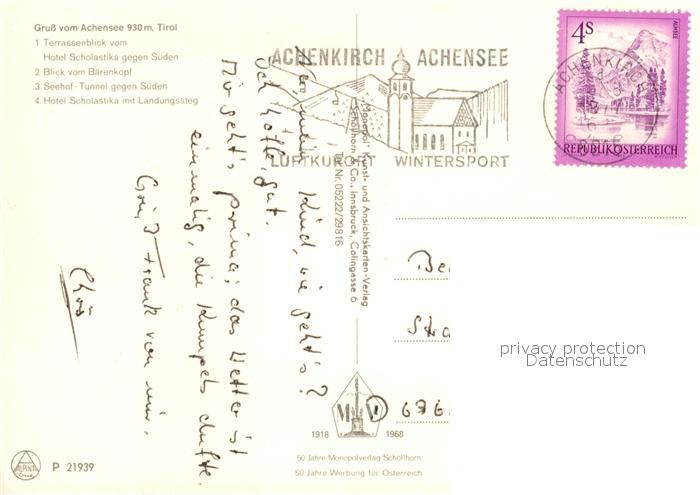 Gruß vom Achensee 930 m, Tirol
1 Terrassenblick vom
Hotel Scholastika gegen Süden
2 Blick vom Bärenkopf
3 Seehof-Tunnel gegen Süden
4 Hotel Scholastika mit Landungssteg
ACHENKIRCH ACHENSEE
LUFTKURORT WINTERSPORT
4S
ALMSEE
REPUBLIK ÖSTERREICH
Monopol Kunst- und Ansichtskarten-Verlag
Schöllhorn & Co., Innsbruck, Colingasse 6
Tel. Nr. 05222/29816
mein Kind, wie geht's?
Ich hoffe, gut.
Mir geht's prima; das Wetter ist
einmalig, die Kumpels dufte.
Grüß Frank von mir.
Chris
Be
Stra
676
M V
1918 1968
50 Jahre Monopolverlag Schöllhorn
50 Jahre Werbung für Österreich
ALPINA
Druck
P 21939
privacy protection
Datenschutz